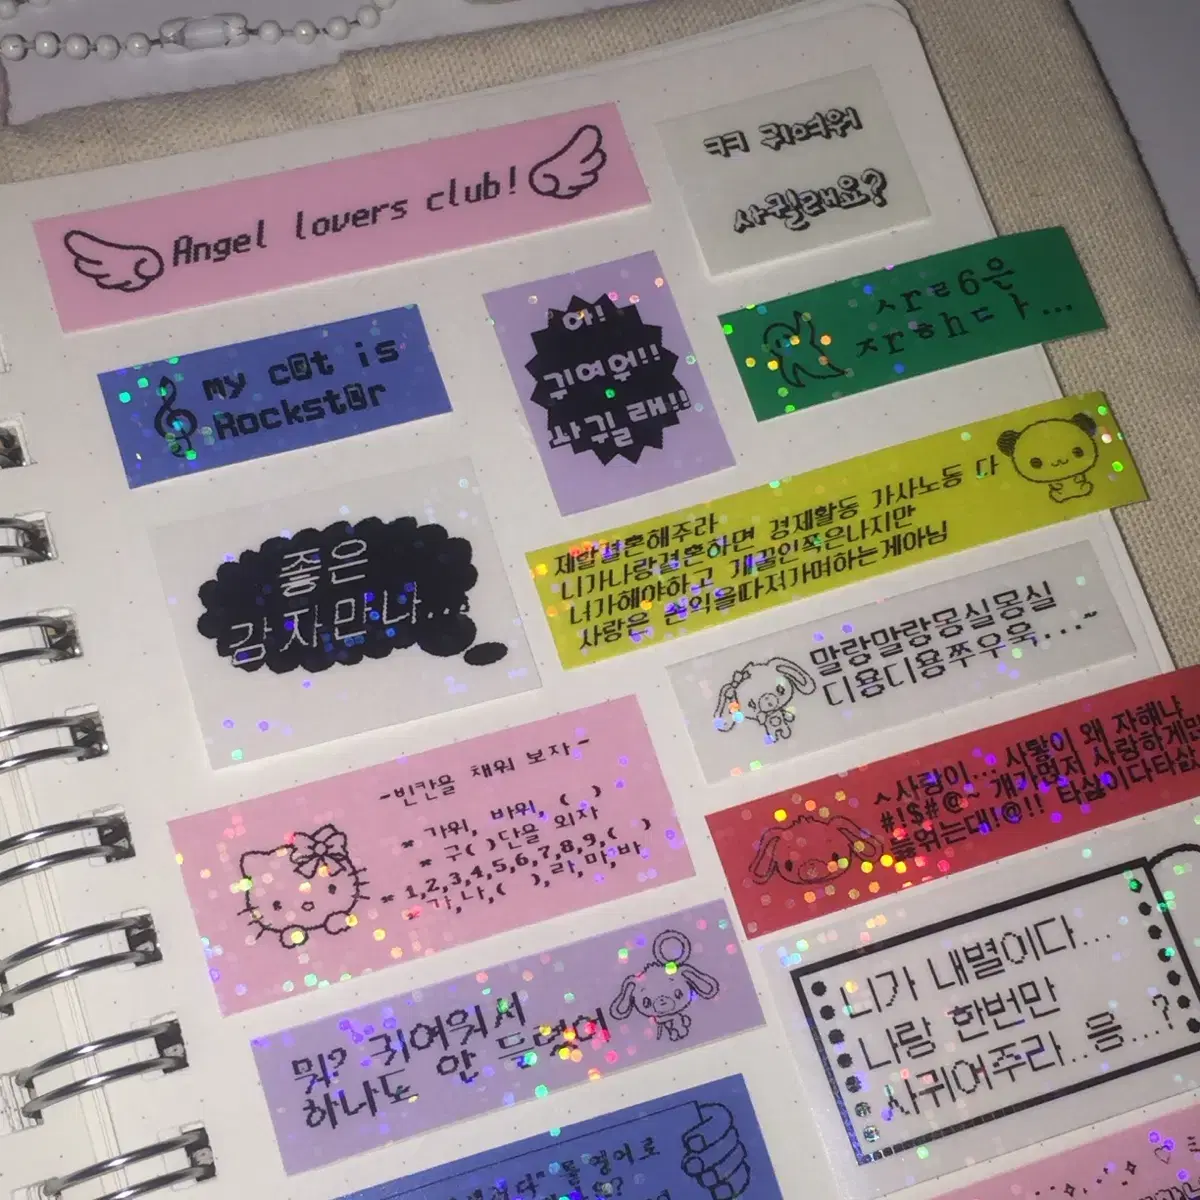 Angel lovers club!
ㅋㅋ 귀여워
사귈래요?
my c@t is
Rockst@r
아!
귀여워!!
사귈래!!
ㅅrㄹ6은
ㅈrㅎhㄷㅏ...
좋은
감자만나...
제발결혼해주라
니가나랑결혼하면 경제활동 가사노동 다
너가해야하고 개꿀인쪽은나지만
사랑은 손익을따져가며하는게아님
말랑말랑몽실몽실
디용디용쭈우욱...~
-빈칸을 채워 보자-
* 가위, 바위, ( )
* 구( )단을 외자
* 1,2,3,4,5,6,7,8,9,( )
* 가,나,( ),라,마,바
ㅅ사랑이... 사랗이 왜 자해냐
#!$#@~ 걔가먼저 사랑하게
들위는대!@!! 타살이다타살
뭐? 귀여워서
하나도 안 들렸어
니가 내별이다...
나랑 한번만
사귀어주라..응...?
를 영어로